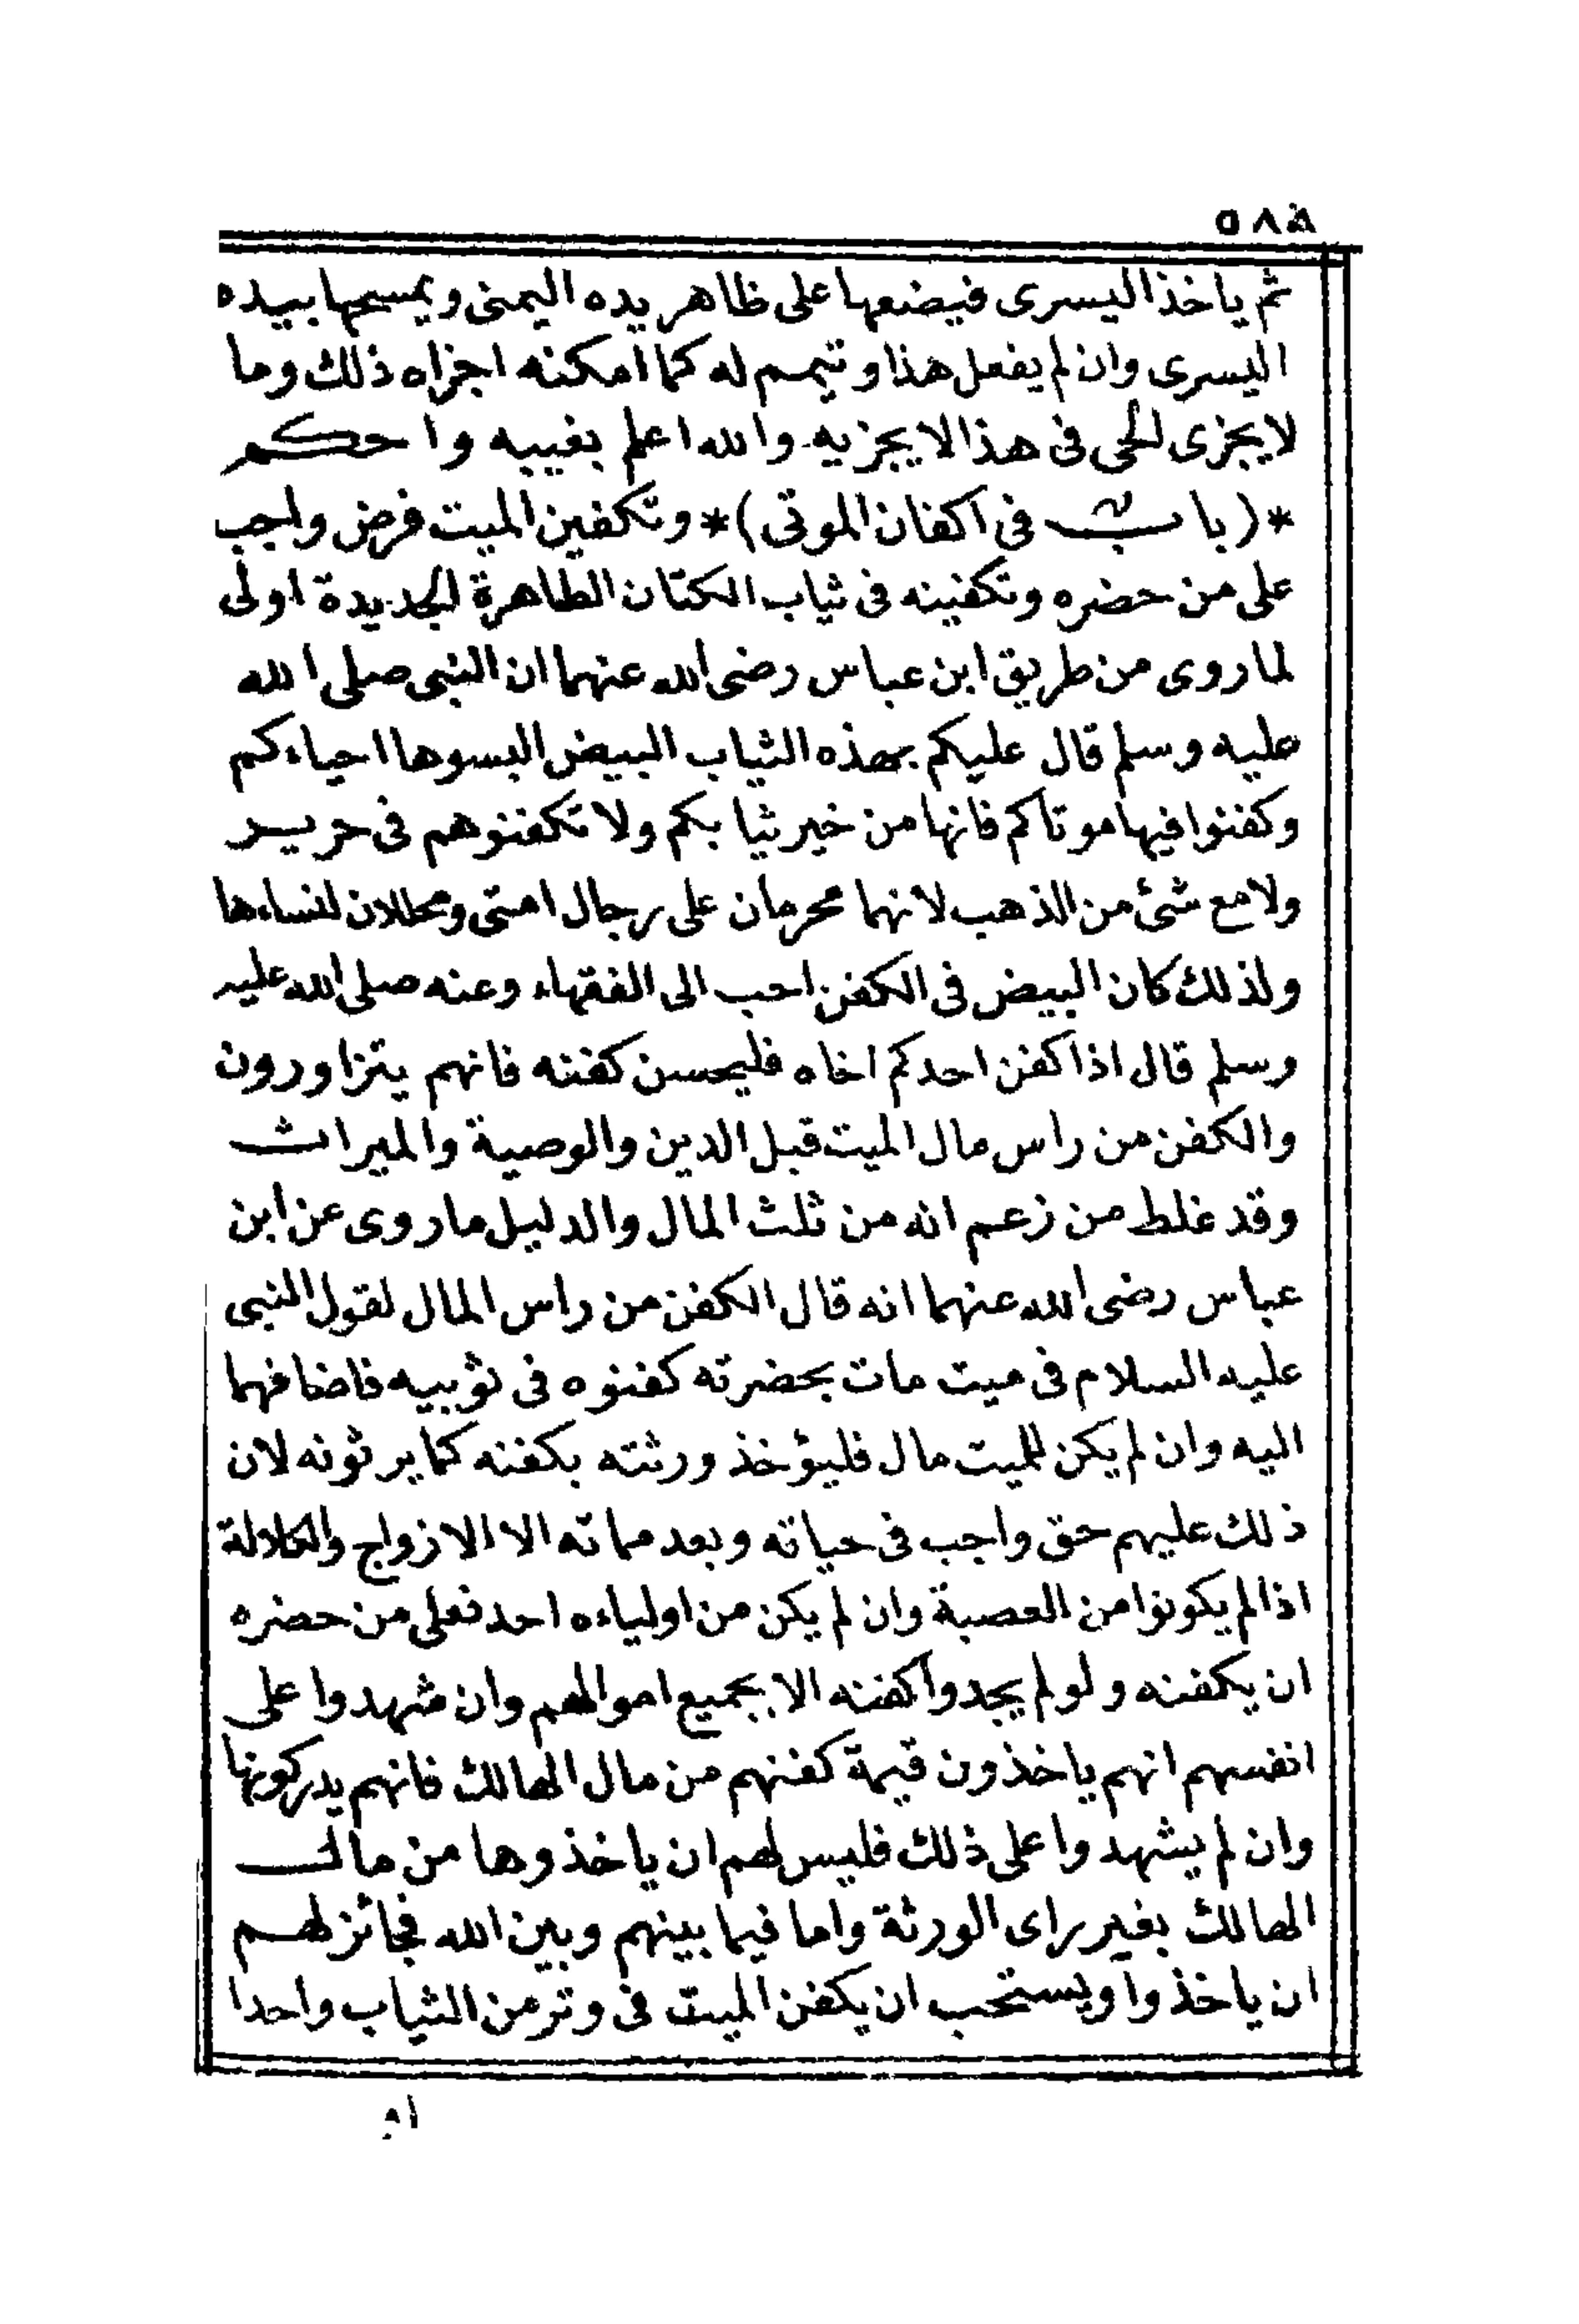 ٥٨٥
ثم ياخذ اليسرى فيضعها على ظاهر يده اليمنى ويمسحها بيده
اليسرى وان لم يفعل هذا وتيمم له كما امكنه اجزاه ذلك وما
لا يجزى الحى فى هذا لا يجزيه والله اعلم بغيبه واحكم
*(باب فى اكفان الموتى)* وتكفين الميت فرض واجب
على من حضره وتكفينه فى ثياب الكتان الطاهرة الجديدة اولى
لما روى من طريق ابن عباس رضى الله عنهما ان النبى صلى الله
عليه وسلم قال عليكم بهذه الثياب البيض البسوها احياءكم
وكفنوا فيها موتاكم فانها من خير ثيابكم ولا تكفنوهم فى حرير
ولا مع شئ من الذهب لانهما محرمان على رجال امتى ومحللان لنساءها
ولذلك كان البيض فى الكفن احب الى الفقهاء وعنه صلى الله عليه
وسلم قال اذا كفن احدكم اخاه فليحسن كفنه فانهم يتزاورون
والكفن من راس مال الميت قبل الدين والوصية والميراث
وقد غلط من زعم انه من ثلث المال والدليل ما روى عن ابن
عباس رضى الله عنهما انه قال الكفن من راس المال لقول النبى
عليه السلام فى ميت مات بحضرته كفنوه فى ثوبيه فاضافهما
اليه وان لم يكن للميت مال فليؤخذ ورثته بكفنه كما يرثونه لان
ذلك عليهم حق واجب فى حياته وبعد مماته الا الازواج والكلالة
اذا لم يكونوا من العصبة وان لم يكن من اولياءه احد فعلى من حضره
ان يكفنه ولو لم يجدوا كفنه الا بجميع اموالهم وان شهدوا على
انفسهم انهم ياخذون قيمة كفنهم من مال الهالك فانهم يدركونها
وان لم يشهدوا على ذلك فليس لهم ان ياخذوها من مال
الهالك بغير راى الورثة واما فيما بينهم وبين الله فجائز لهم
ان ياخذوا ويستحب ان يكفن الميت فى وتر من الثياب واحدا